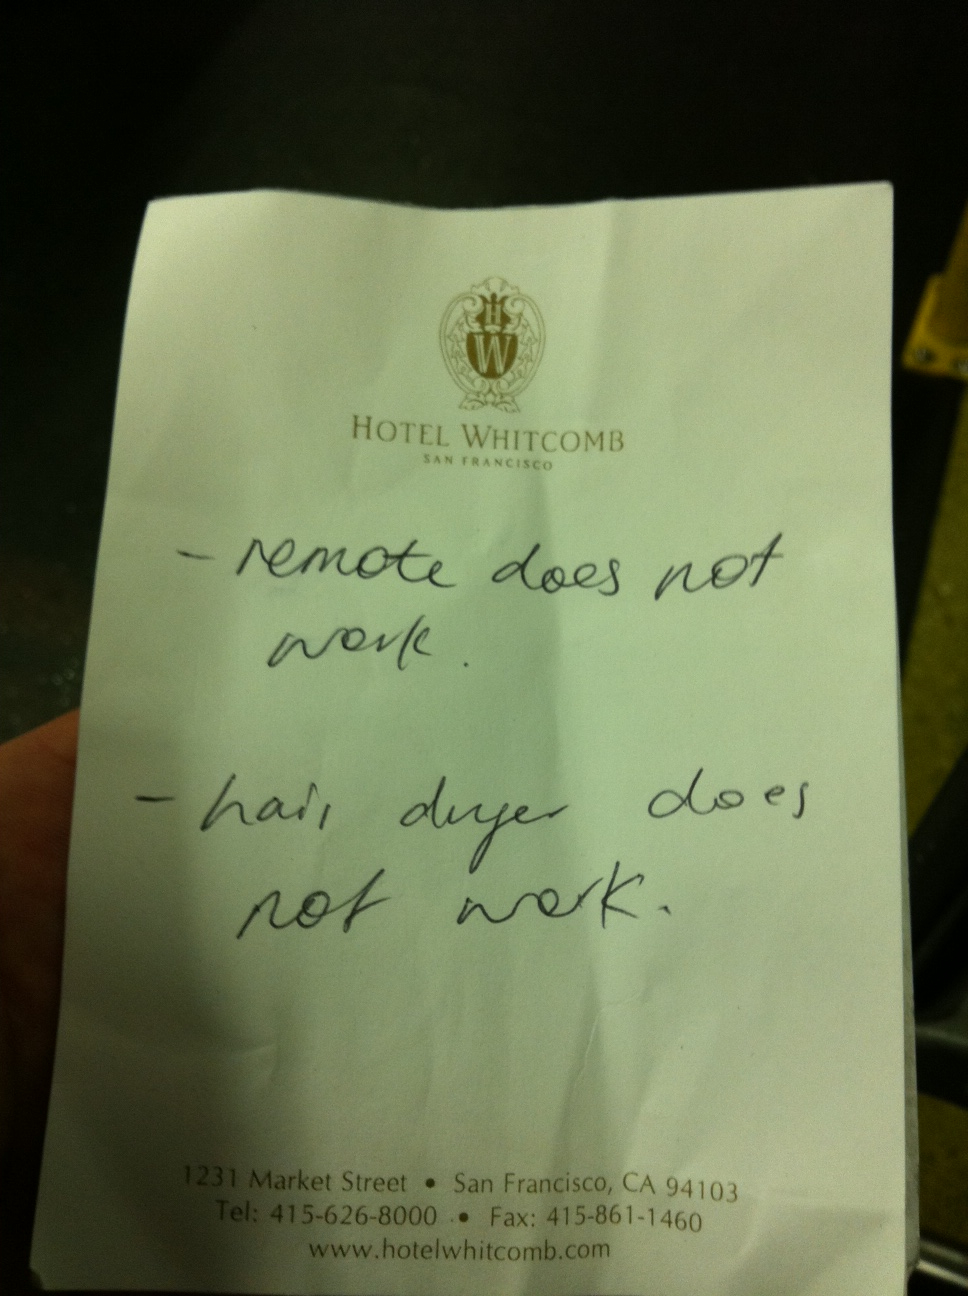 H
W
HOTEL WHITCOMB
SAN FRANCISCO
- remote does not
work.
- hair dryer does
not work.
1231 Market Street • San Francisco, CA 94103
Tel: 415-626-8000 • Fax: 415-861-1460
www.hotelwhitcomb.com